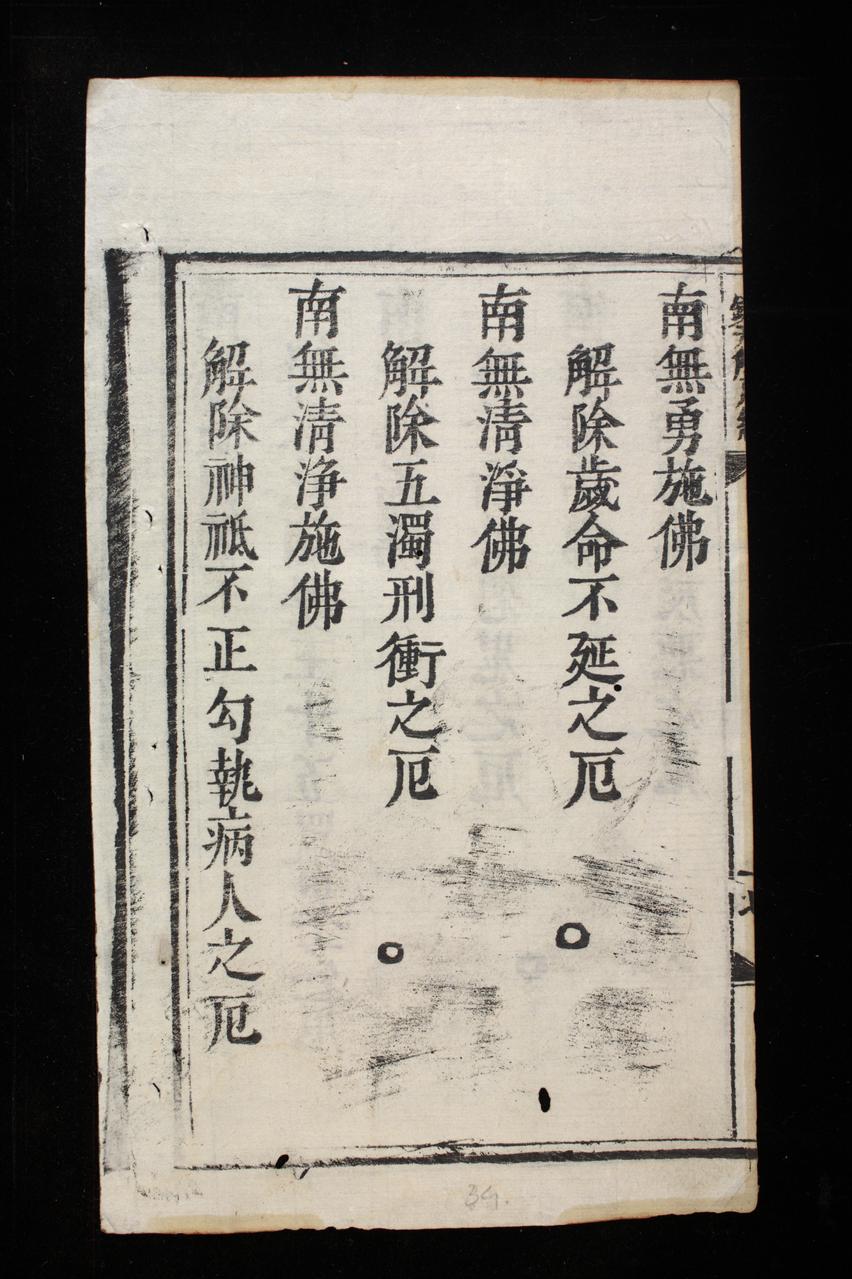 南無勇施佛
解除歲命不延之厄
南無清淨佛
解除五濁刑衝之厄
南無清净施佛
解除神祗不正勾執病人之厄
34.